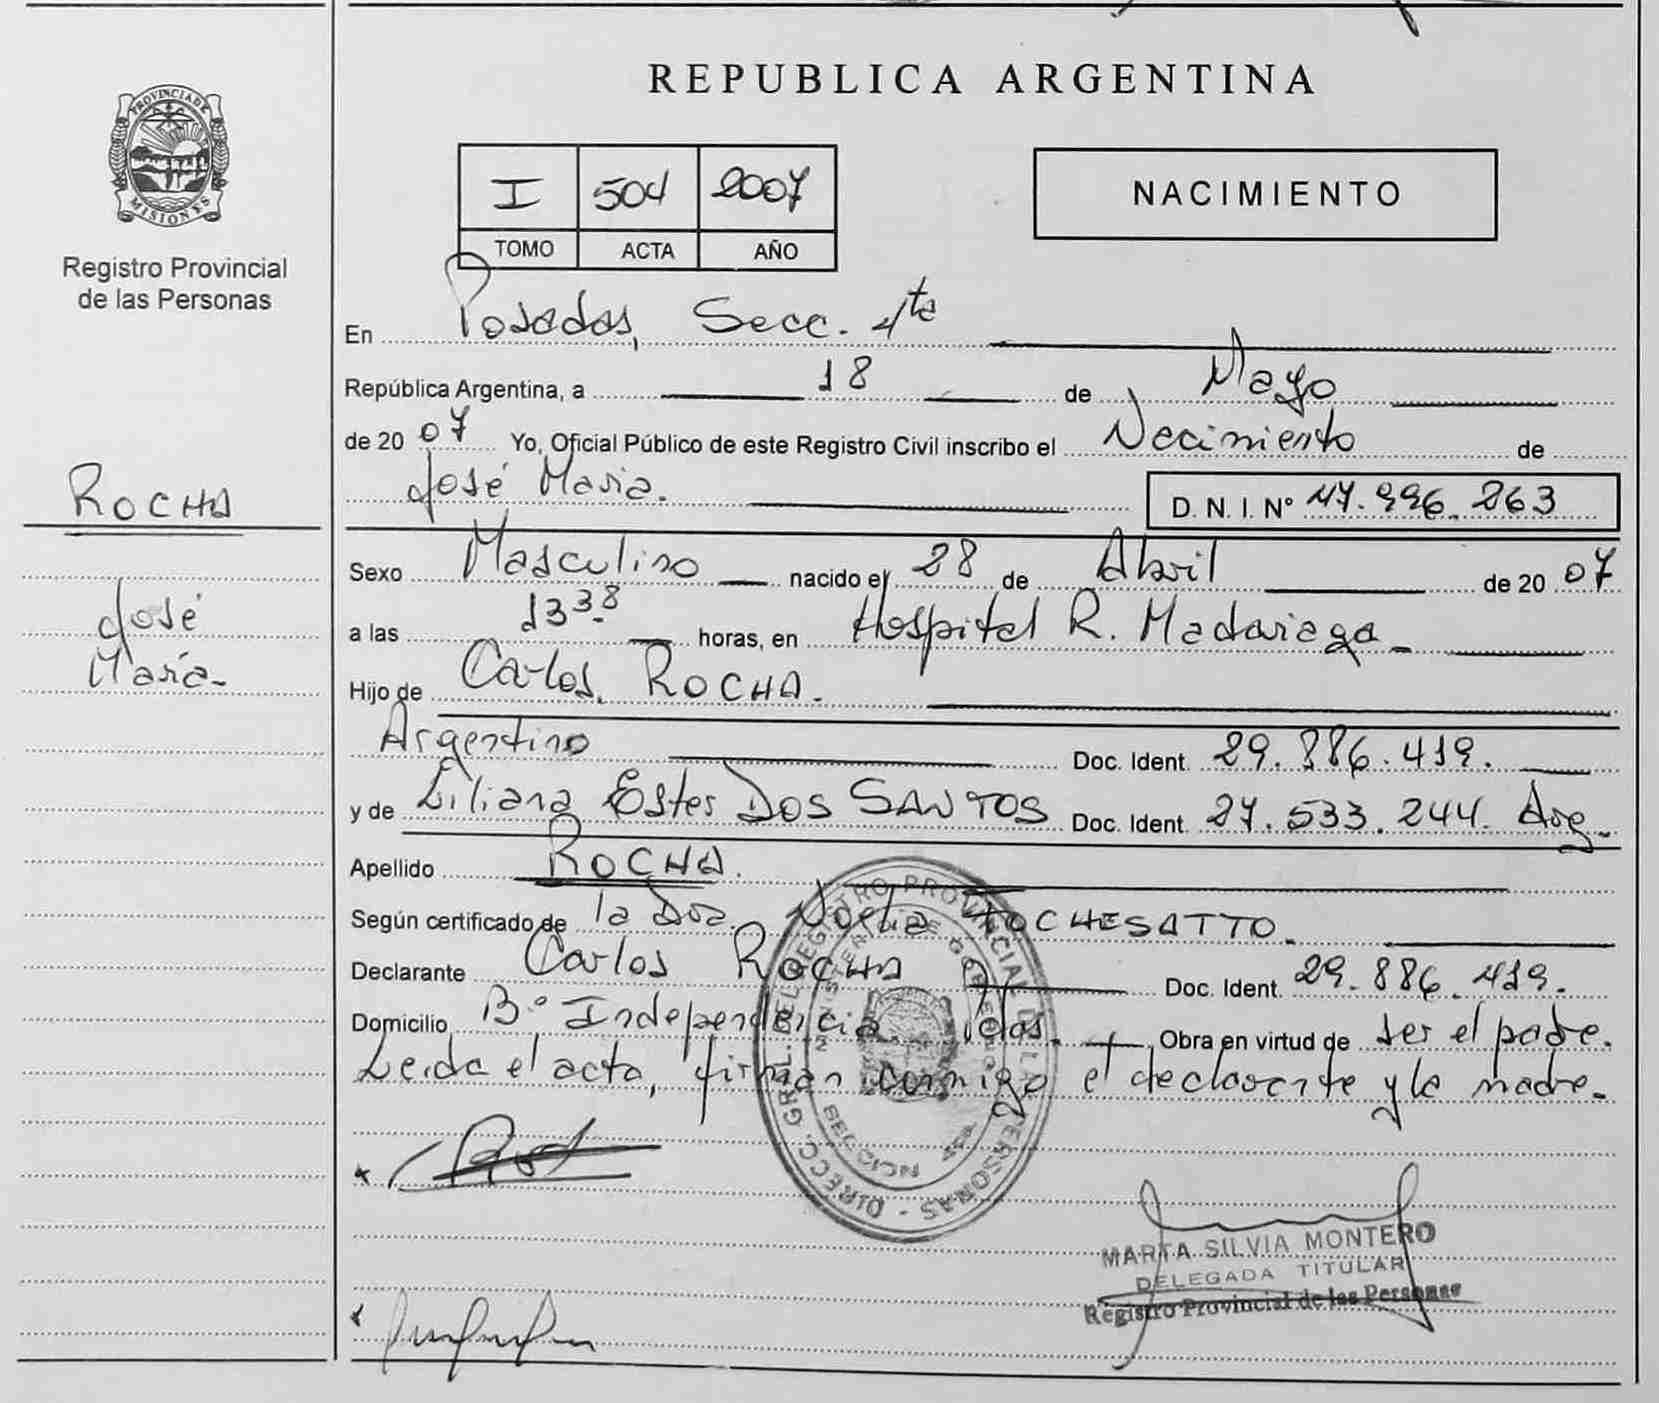 REPUBLICA ARGENTINA
PROVINCIA DE MISIONES
Registro Provincial
de las Personas
I 504 2007
TOMO ACTA AÑO
NACIMIENTO
En Posadas, Secc. 4ta
República Argentina, a 18 de Mayo
de 2007 Yo, Oficial Público de este Registro Civil inscribo el Nacimiento de
José Maria. D. N. I. Nº 47.996.263
ROCHA
José
María.-
Sexo Masculino nacido el 28 de Abril de 2007
a las 13 38 horas, en Hospital R. Madariaga
Hijo de Carlos ROCHA.
Argentino Doc. Ident. 29.886.419.
y de Liliana Ester DOS SANTOS Doc. Ident. 27.533.244. Arg.
Apellido ROCHA.
Según certificado de la Dra. Noelia TOCHESATTO.
Declarante Carlos ROCHA Doc. Ident. 29.886.419.
Domicilio Bº Independencia Pdas. Obra en virtud de ser el padre.
Leida el acta, firman conmigo el declarante y la madre.
DIRECC. GRAL. DEL REGISTRO PROVINCIAL DE LAS PERSONAS
MARTA SILVIA MONTERO
DELEGADA TITULAR
Registro Provincial de las Personas